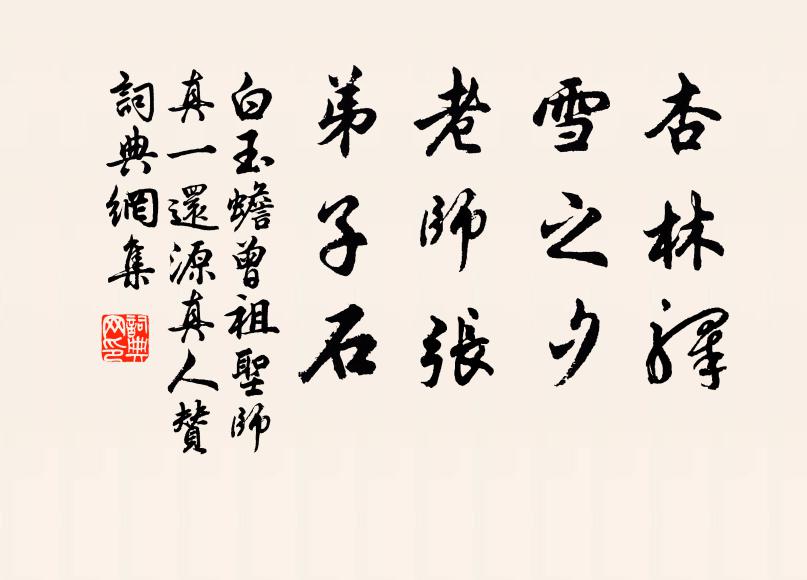 杏林驛
雪之夕
老師張
弟子石
白玉蟾曾祖聖師
真一還源真人贊
詞典網集
詞典
网印